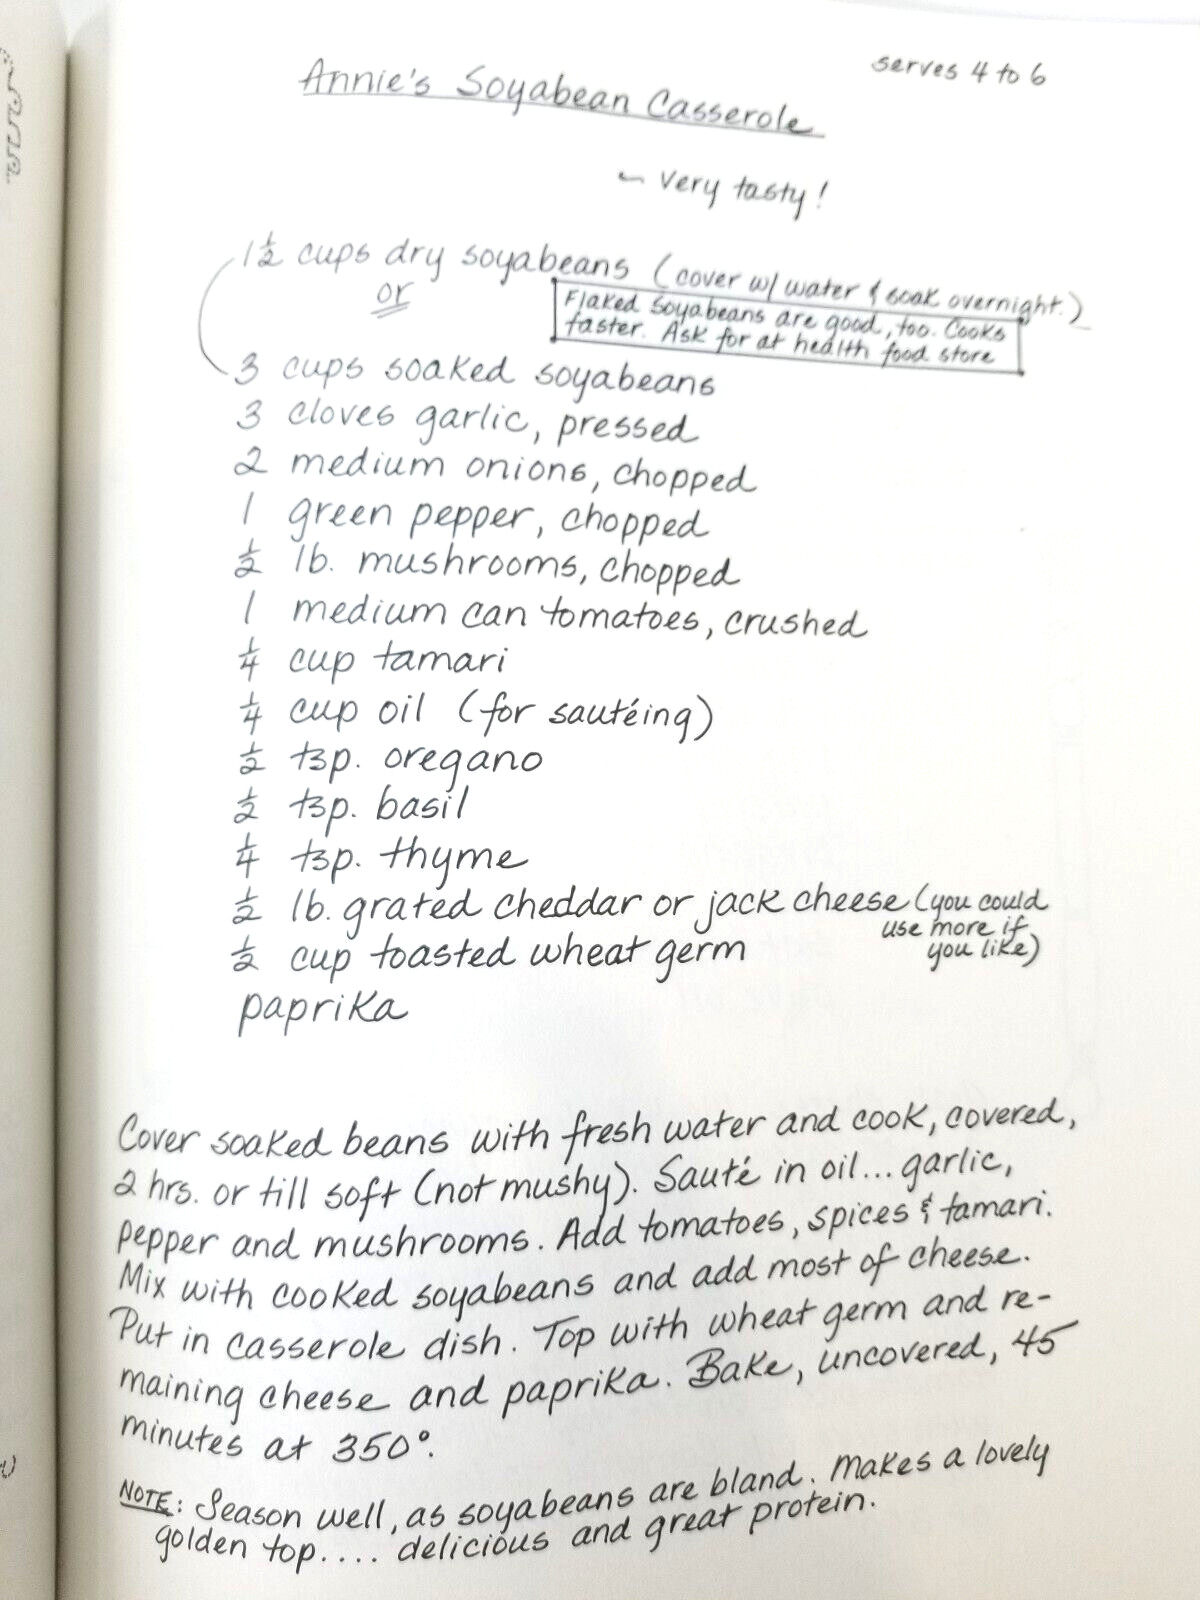 Annie's Soyabean Casserole
serves 4 to 6
~ very tasty!
1½ cups dry soyabeans (cover w/ water & soak overnight.)
or
Flaked Soyabeans are good, too. Cooks
faster. Ask for at health food store
3 cups soaked soyabeans
3 cloves garlic, pressed
2 medium onions, chopped
1 green pepper, chopped
½ lb. mushrooms, chopped
1 medium can tomatoes, crushed
¼ cup tamari
¼ cup oil (for sautéing)
½ tsp. oregano
½ tsp. basil
¼ tsp. thyme
½ lb. grated cheddar or jack cheese (you could
use more if
you like)
½ cup toasted wheat germ
paprika
Cover soaked beans with fresh water and cook, covered,
2 hrs. or till soft (not mushy). Sauté in oil... garlic,
pepper and mushrooms. Add tomatoes, spices & tamari.
Mix with cooked soyabeans and add most of cheese.
Put in casserole dish. Top with wheat germ and re-
maining cheese and paprika. Bake, uncovered, 45
minutes at 350°.
NOTE: Season well, as soyabeans are bland. Makes a lovely
golden top.... delicious and great protein.